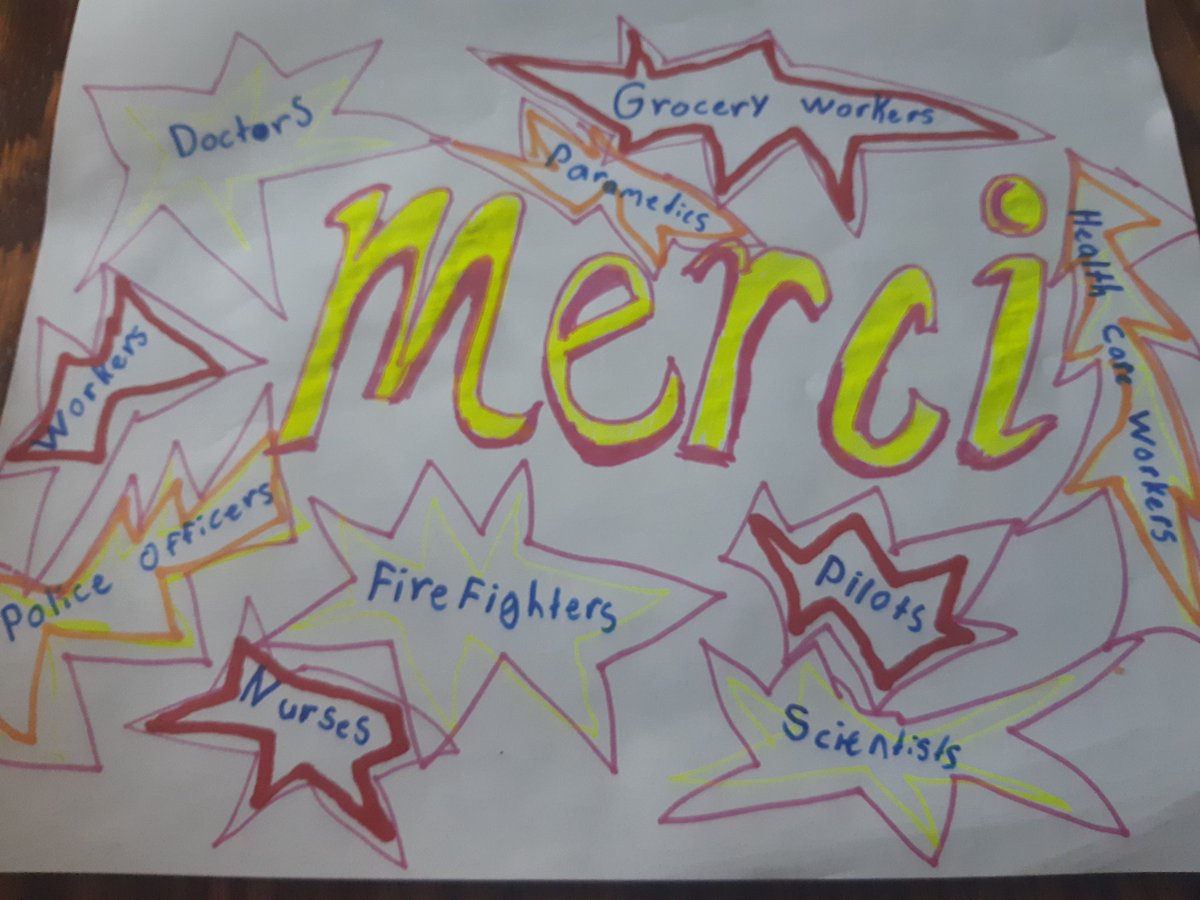 Doctors
Grocery workers
Paramedics
merci
Health Care Workers
Workers
Police Officers
FireFighters
Pilots
Nurses
Scientists